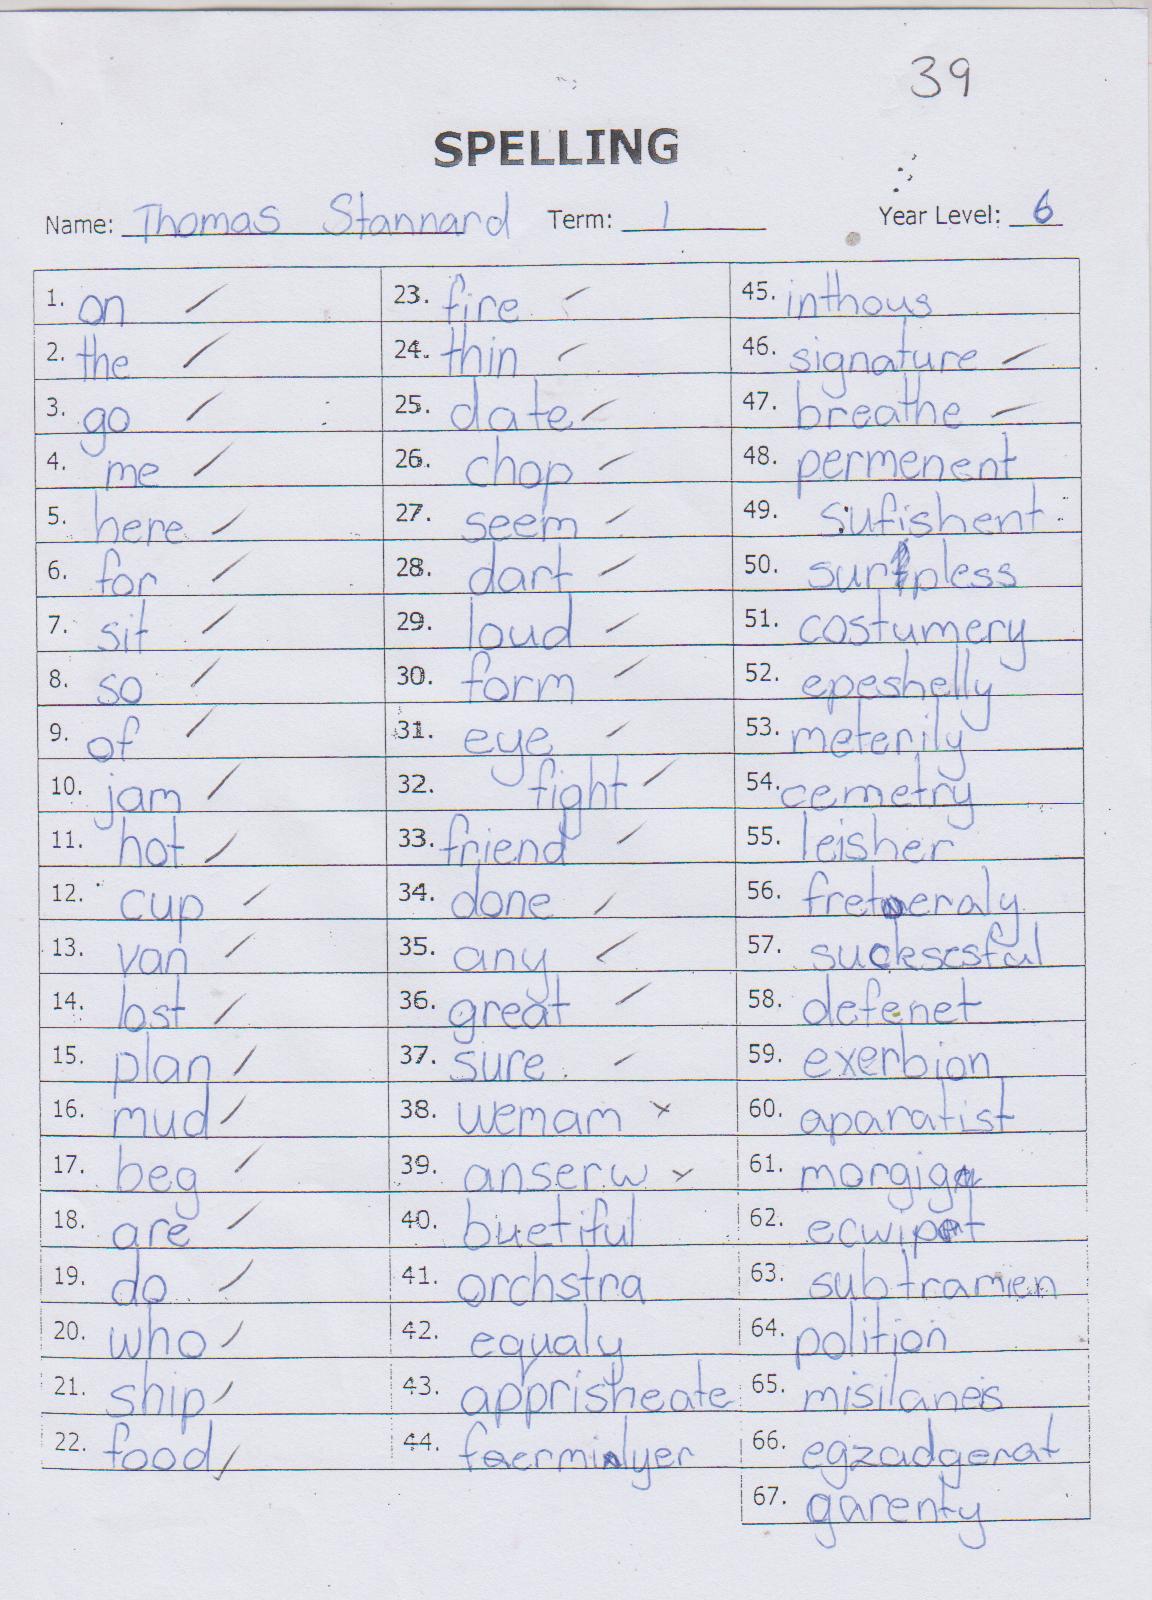 39
SPELLING
Name: Thomas Stannard Term: 1 Year Level: 6
1. on
2. the
3. go
4. me
5. here
6. for
7. sit
8. so
9. of
10. jam
11. hot
12. cup
13. van
14. lost
15. plan
16. mud
17. beg
18. are
19. do
20. who
21. ship
22. food
23. fire
24. thin
25. date
26. chop
27. seem
28. dart
29. loud
30. form
31. eye
32. fight
33. friend
34. done
35. any
36. great
37. sure
38. wemam
39. anserw
40. buetiful
41. orchstra
42. equaly
43. apprisheate
44. faermialyer
45. inthous
46. signature
47. breathe
48. permenent
49. sufishent
50. surpless
51. costumery
52. epeshelly
53. meterily
54. cemetry
55. leisher
56. freteraly
57. sucksesful
58. defenet
59. exerbion
60. aparatist
61. morgiga
62. ecwipet
63. subtramien
64. polition
65. misilaneis
66. egzadgerat
67. garenty